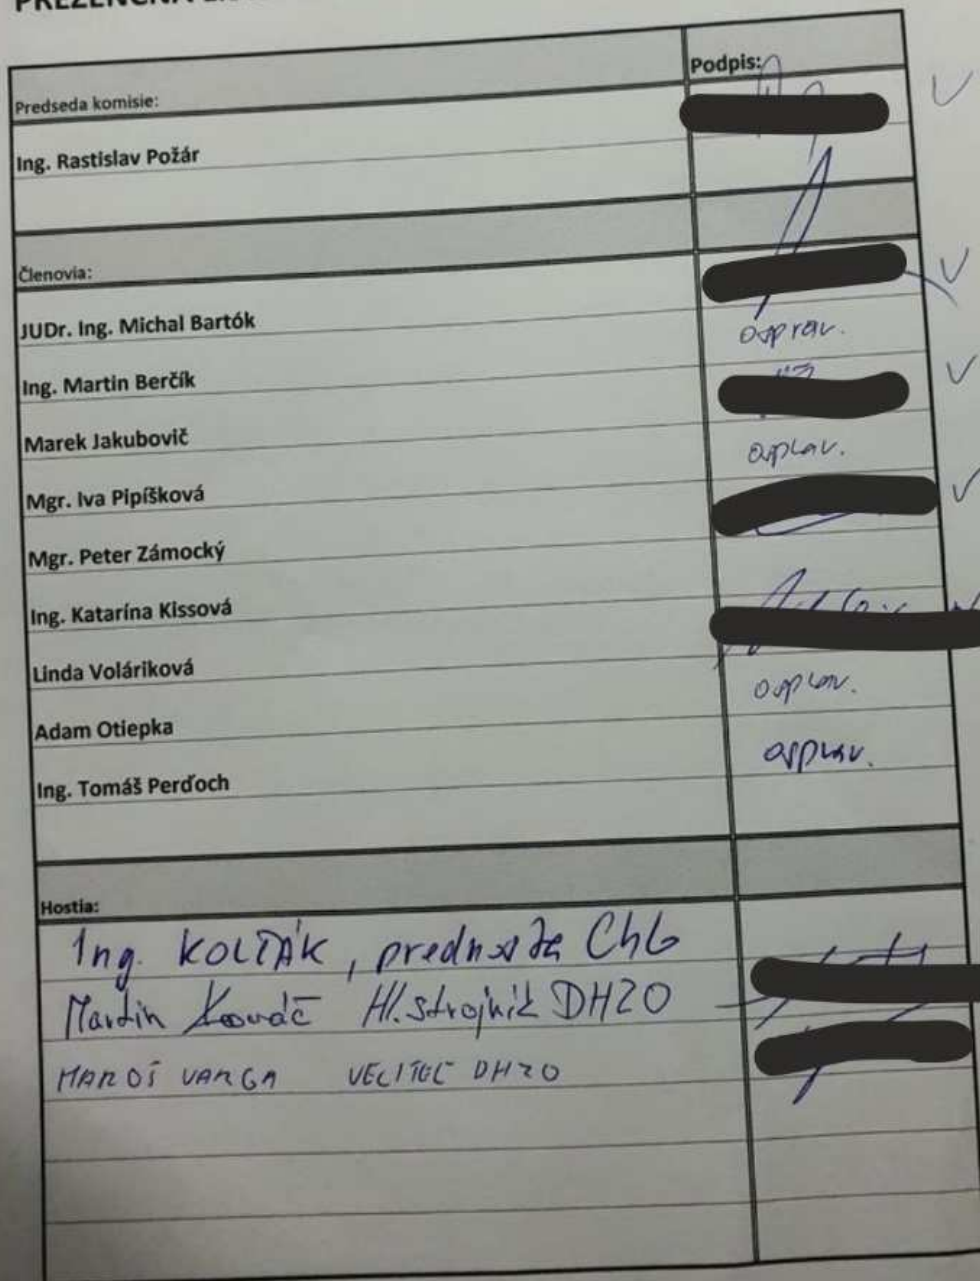 Podpis:
Predseda komisie:
Ing. Rastislav Požár
Členovia:
JUDr. Ing. Michal Bartók
osprav.
Ing. Martin Berčík
Marek Jakubovič
osprav.
Mgr. Iva Pipíšková
Mgr. Peter Zámocký
Ing. Katarína Kissová
Linda Voláriková
osprav.
Adam Otiepka
osprav.
Ing. Tomáš Perďoch
Hostia:
Ing. KOLTÁK, prednosta
Martin Kováč Hl. strojník DHZO
MAROŠ VARGA VELITEĽ DHZO